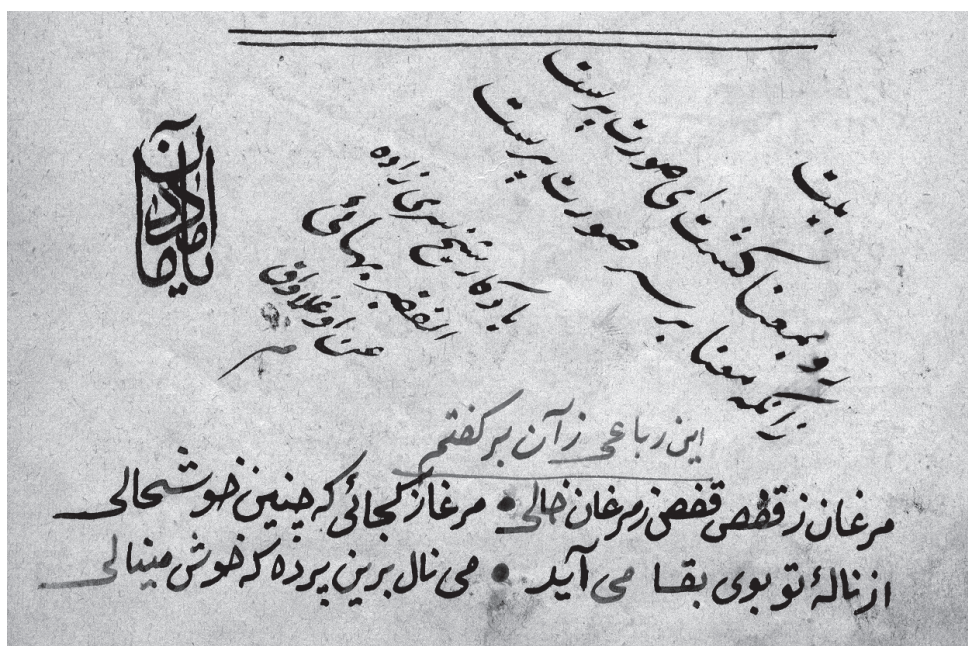 بيت
رو بمعنا کشت ای صورت پرست
زانکه معنا بر سر صورت پرست
یادکار شیخ سری زاده
بهائی
این رباعی ز آن بر کفتم
مرغان ز قفص قفص ز مرغان خالی • مرغا ز کجائی که چنین خوشحالی
از نالهٔ تو بوی بقا می آید • می نال برین پرده که خوش مینالی